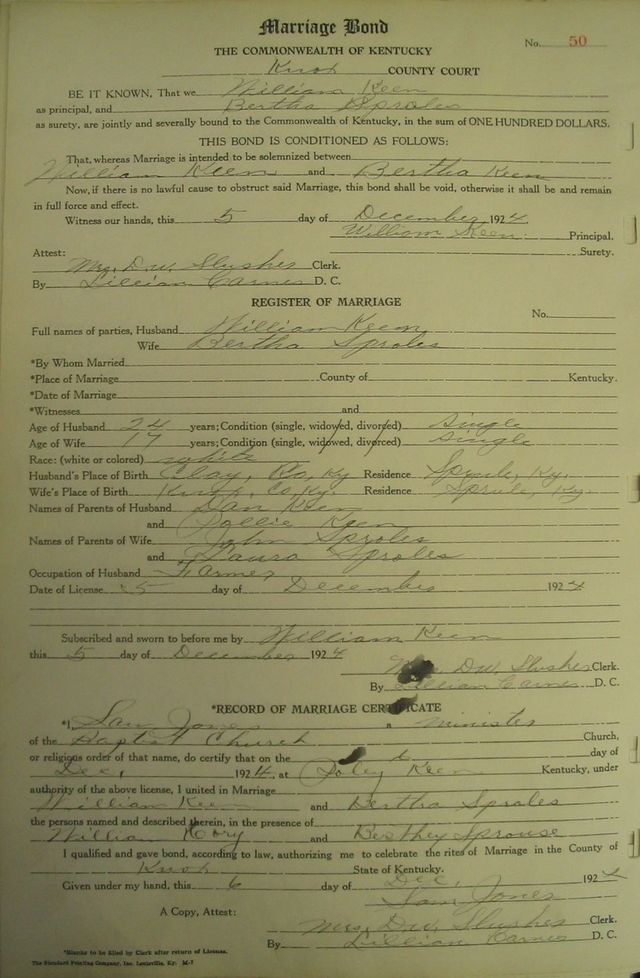 Marriage Bond
No. 50
THE COMMONWEALTH OF KENTUCKY
Knox COUNTY COURT
BE IT KNOWN, That we William Keen
as principal, and Bertha Sproles
as surety, are jointly and severally bound to the Commonwealth of Kentucky, in the sum of ONE HUNDRED DOLLARS.
THIS BOND IS CONDITIONED AS FOLLOWS:
That, whereas Marriage is intended to be solemnized between
William Keen and Bertha Keen
Now, if there is no lawful cause to obstruct said Marriage, this bond shall be void, otherwise it shall be and remain
in full force and effect.
Witness our hands, this 5 day of December, 1924
William Keen Principal.
Surety.
Attest:
Mrs. D.W. Slusher Clerk.
By Lillian Carnes D. C.
REGISTER OF MARRIAGE
No.
Full names of parties, Husband William Keen
Wife Bertha Sproles
*By Whom Married
*Place of Marriage County of Kentucky.
*Date of Marriage
*Witnesses and
Age of Husband 24 years; Condition (single, widowed, divorced) single
Age of Wife 17 years; Condition (single, widowed, divorced) single
Race: (white or colored) white
Husband's Place of Birth Clay, Co, Ky Residence Sprule, Ky.
Wife's Place of Birth Knox, Co, Ky. Residence Sprule, Ky.
Names of Parents of Husband Dan Keen
and Keen
Names of Parents of Wife John Sproles
and Laura Sproles
Occupation of Husband Farmer
Date of License 5 day of December 1924
Subscribed and sworn to before me by William Keen
this 5 day of December 1924
Mrs. D.W. Slusher Clerk.
By Lillian Carnes D. C.
*RECORD OF MARRIAGE CERTIFICATE
*I, Sam Jones a minister
of the Baptist Church Church,
or religious order of that name, do certify that on the 6 day of
Dec, 1924, at Keen Kentucky, under
authority of the above license, I united in Marriage
William Keen and Bertha Sproles
the persons named and described therein, in the presence of
William and Sprouse
I qualified and gave bond, according to law, authorizing me to celebrate the rites of Marriage in the County of
Knox State of Kentucky.
Given under my hand, this 6 day of Dec, 1924
Sam Jones
A Copy, Attest: Mrs. D.W. Slusher Clerk.
By Lillian Carnes D. C.
*Blanks to be filed by Clerk after return of License.
The Standard Printing Company, Inc. Louisville, Ky. M-1